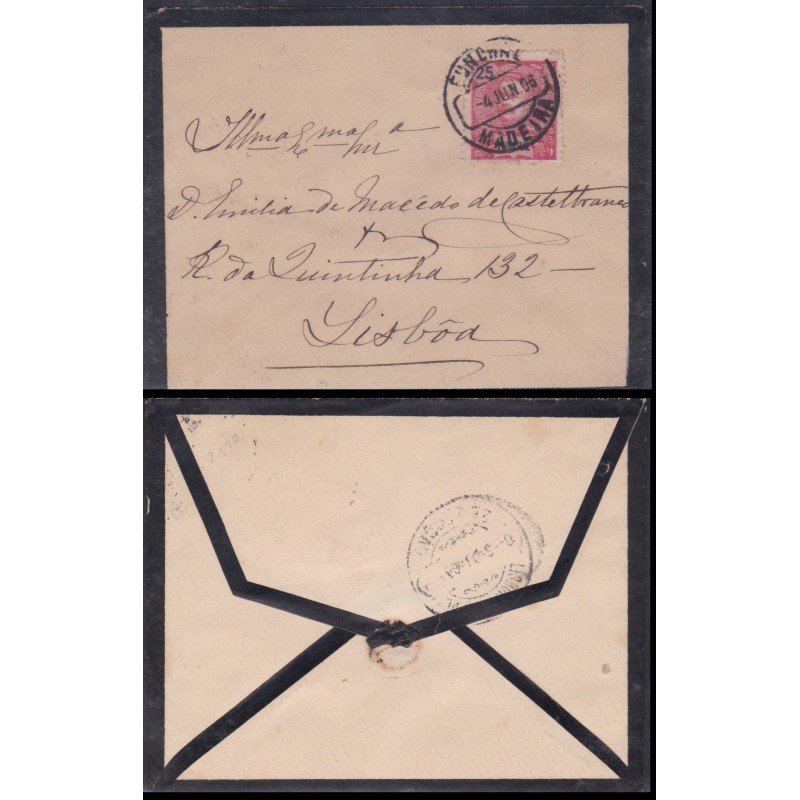 FUNCHAL
25
-4 JUN 06
MADEIRA
Illma Exma Snra
D. Emilia de Macêdo de Castelbranco
R. da Quintinha 132 —
Lisbôa